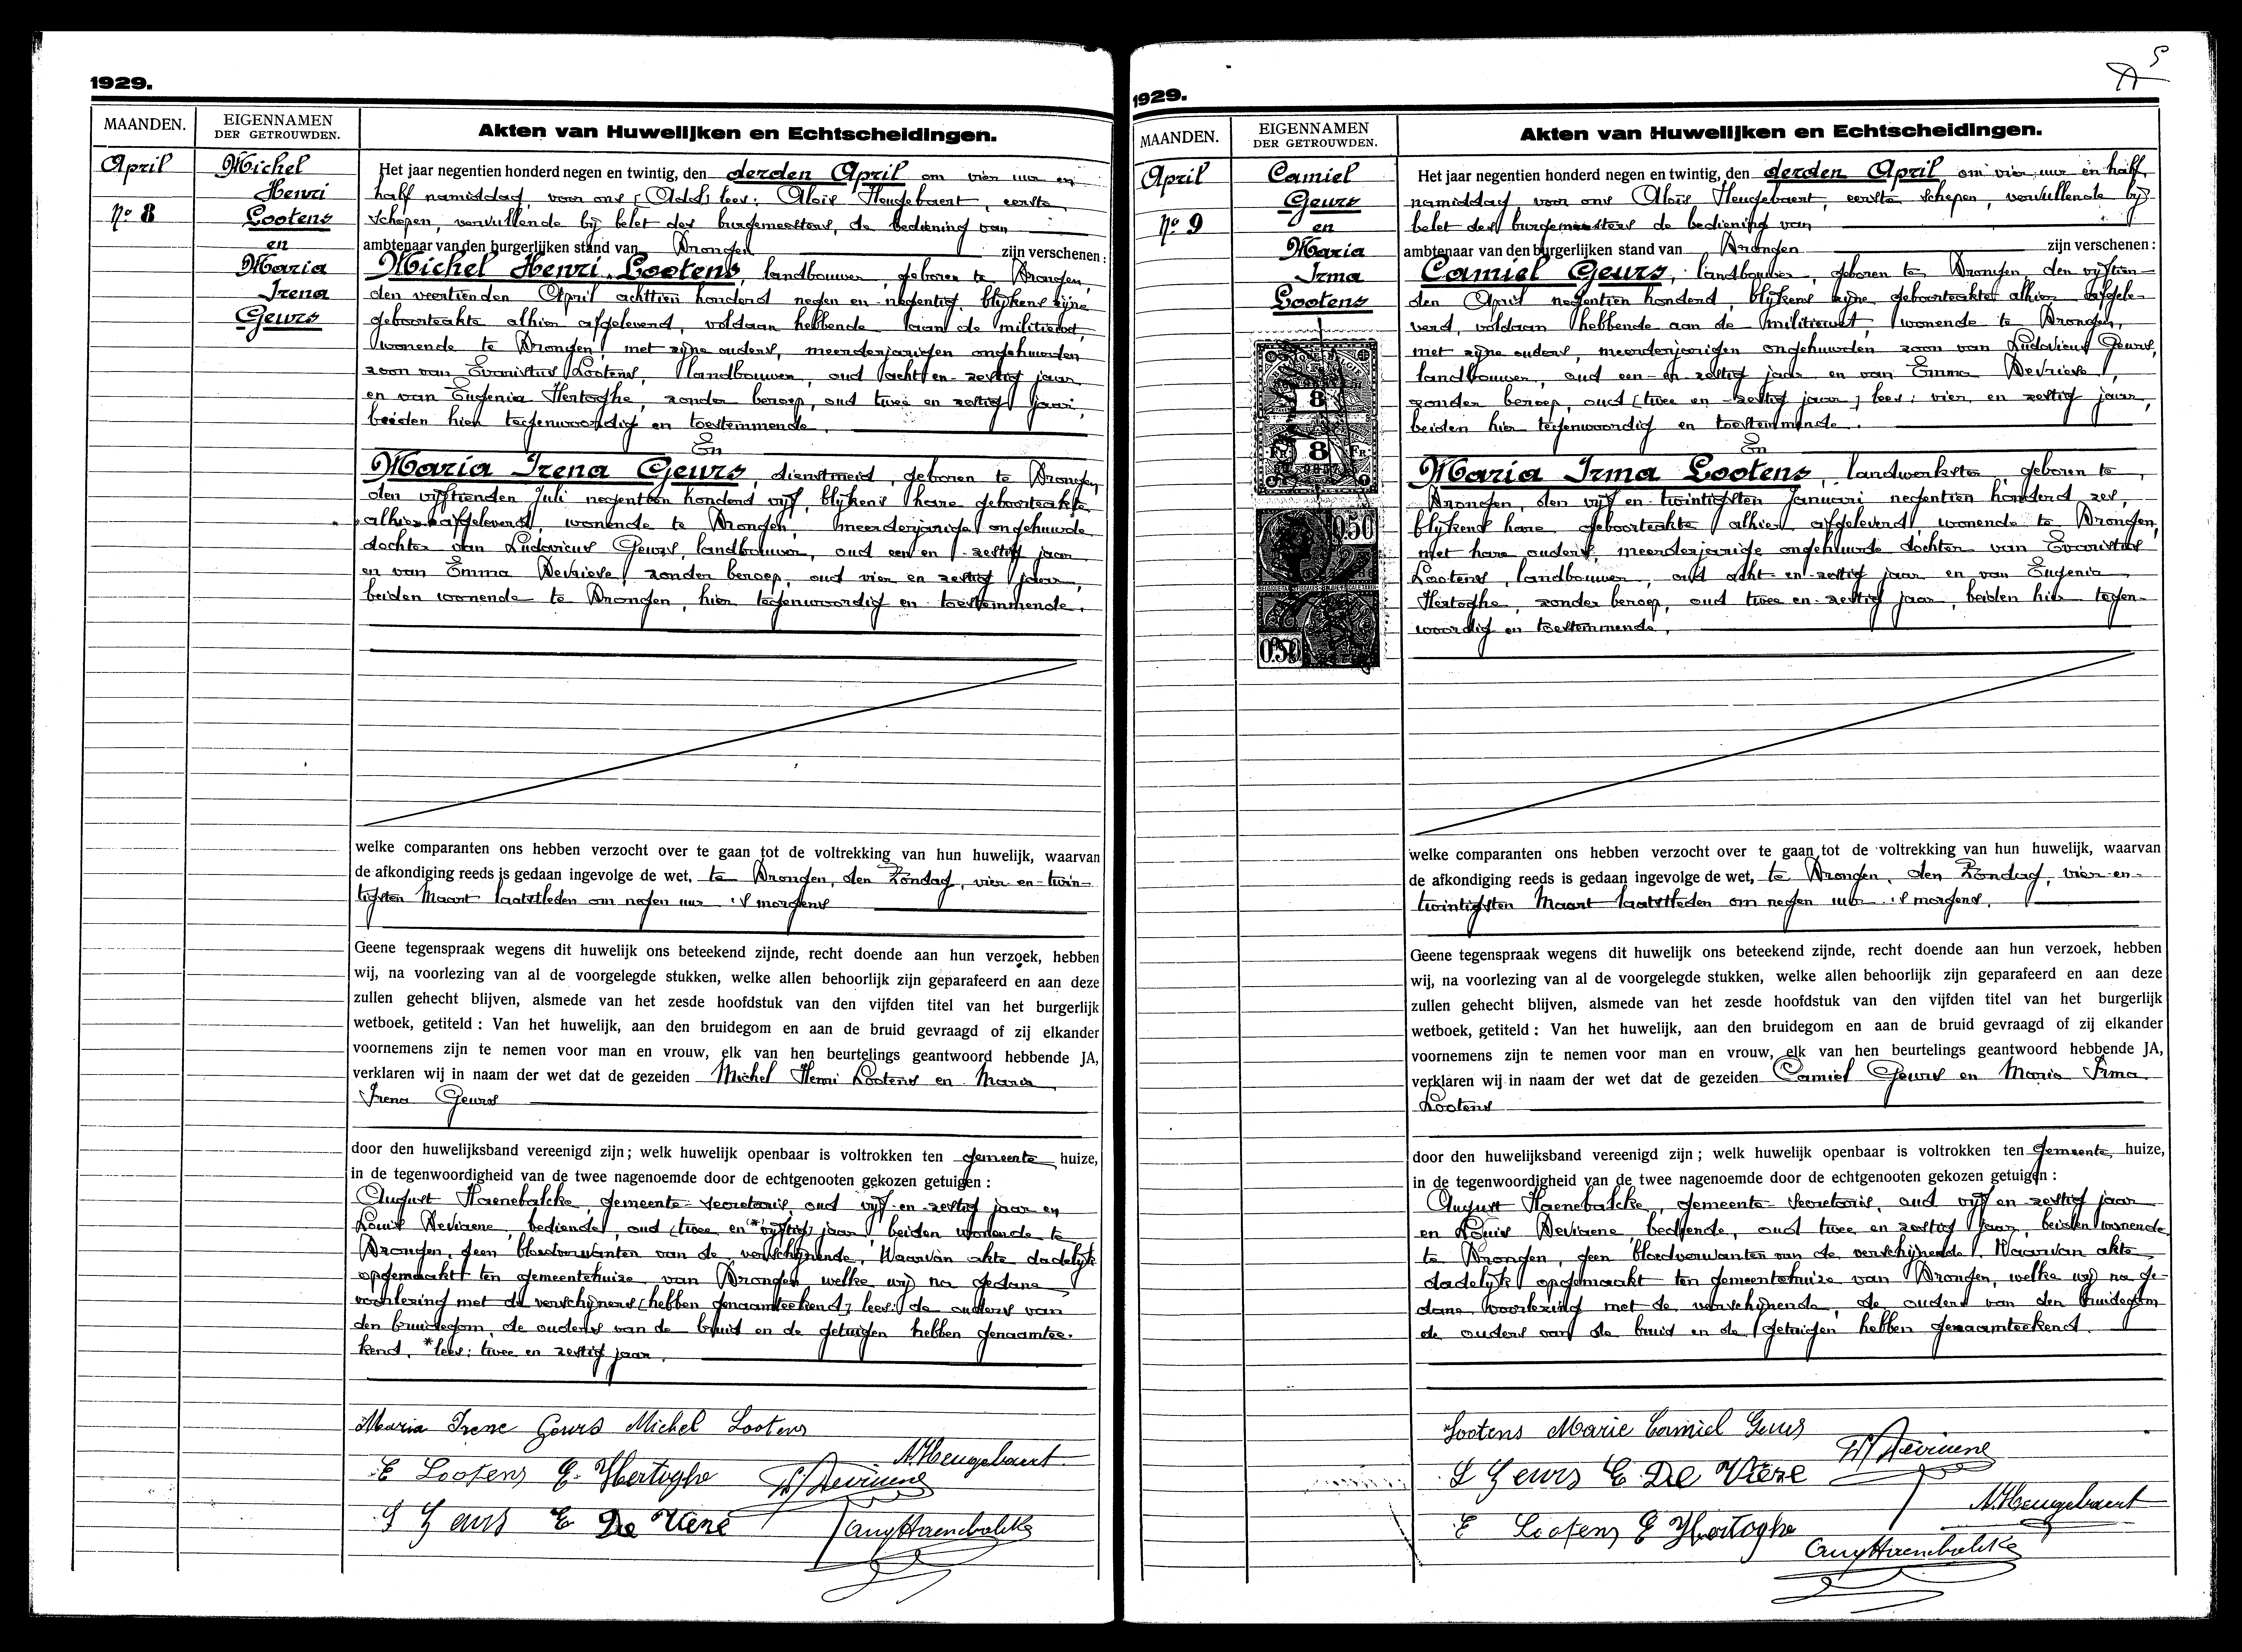 1929.
MAANDEN.
EIGENNAMEN
DER GETROUWDEN.
Akten van Huwelijken en Echtscheidingen.
April
No 8
Michel
Henri
Lootens
en
Maria
Irena
Geurs
Het jaar negentien honderd negen en twintig, den derden April om vier uur en
half namiddag, voor ons lees: Aloïs Heugebaert, eerste
schepen, vervullende bij belet des burgemeesters, de bediening van
ambtenaar van den burgerlijken stand van Drongen zijn verschenen:
Michel Henri Lootens, landbouwer, geboren te Drongen,
den veertienden April achttien honderd negen en negentig, blijkens zijne
geboorteakte alhier afgeleverd, voldaan hebbende aan de militiewet,
wonende te Drongen, met zijne ouders, meerderjarigen ongehuwden
zoon van Evaristus Lootens, landbouwer, oud acht en zestig jaar
en van Eugenia Hertoghe, zonder beroep, oud twee en zestig jaar,
beiden hier tegenwoordig en toestemmende.
En
Maria Irena Geurs, dienstmeid, geboren te Drongen,
den vijftienden Juli negentien honderd vijf, blijkens hare geboorteakte
alhier afgeleverd, wonende te Drongen, meerderjarige ongehuwde
dochter van Ludovicus Geurs, landbouwer, oud een en zestig jaar
en van Emma Devriese, zonder beroep, oud vier en zestig jaar,
beiden wonende te Drongen, hier tegenwoordig en toestemmende.
welke comparanten ons hebben verzocht over te gaan tot de voltrekking van hun huwelijk, waarvan
de afkondiging reeds is gedaan ingevolge de wet, te Drongen, den Zondag, vier-en-twin-
tigsten Maart laatstleden om negen uur 's morgens
Geene tegenspraak wegens dit huwelijk ons beteekend zijnde, recht doende aan hun verzoek, hebben
wij, na voorlezing van al de voorgelegde stukken, welke allen behoorlijk zijn geparafeerd en aan deze
zullen gehecht blijven, alsmede van het zesde hoofdstuk van den vijfden titel van het burgerlijk
wetboek, getiteld : Van het huwelijk, aan den bruidegom en aan de bruid gevraagd of zij elkander
voornemens zijn te nemen voor man en vrouw, elk van hen beurtelings geantwoord hebbende JA,
verklaren wij in naam der wet dat de gezeiden Michel Henri Lootens en Maria
Irena Geurs
door den huwelijksband vereenigd zijn; welk huwelijk openbaar is voltrokken ten gemeente huize,
in de tegenwoordigheid van de twee nagenoemde door de echtgenooten gekozen getuigen :
August Haenebalcke, gemeente-secretaris, oud vijf-en-zestig jaar en
Louis Deviaene, bediende, oud (twee en *vijftig) jaar, beiden wonende te
Drongen, geen bloedverwanten van de verschijnende. Waarvan akte dadelijk
opgemaakt ten gemeentehuize van Drongen, welke wij na gedane
voorlezing met de verschijners (hebben genaamteekend) lees: de ouders van
den bruidegom, de ouders van de bruid en de getuigen hebben genaamtee-
kend. *lees: twee en zestig jaar.
Maria Irene Geurs Michel Lootens
A. Heugebaert
E Lootens E. Hertoghe
L Geurs E De Vriese
Aug Haenebalcke
1929.
5
MAANDEN.
EIGENNAMEN
DER GETROUWDEN.
Akten van Huwelijken en Echtscheidingen.
April
No 9
Camiel
Geurs
en
Maria
Irma
Lootens
8
FR 8 FR
0.50
0.50
Het jaar negentien honderd negen en twintig, den derden April om vier uur en half
namiddag, voor ons Aloïs Heugebaert, eerste schepen, vervullende bij
belet des burgemeesters de bediening van
ambtenaar van den burgerlijken stand van Drongen zijn verschenen :
Camiel Geurs, landbouwer, geboren te Drongen, den vijftien-
den April negentien honderd, blijkens zijne geboorteakte alhier afgele-
verd, voldaan hebbende aan de militiewet, wonende te Drongen,
met zijne ouders, meerderjarigen ongehuwden zoon van Ludovicus Geurs,
landbouwer, oud een-en-zestig jaar en van Emma Devriese,
zonder beroep, oud (twee en zestig jaar) lees: vier en zestig jaar,
beiden hier tegenwoordig en toestemmende.
En
Maria Irma Lootens, landwerkster, geboren te
Drongen, den vijf en twintigsten Januari negentien honderd zes,
blijkens hare geboorteakte alhier afgeleverd wonende te Drongen,
met hare ouders, meerderjarige ongehuwde dochter van Evaristus
Lootens, landbouwer, oud acht-en-zestig jaar en van Eugenia
Hertoghe, zonder beroep, oud twee en zestig jaar, beiden hier tegen-
woordig en toestemmende.
welke comparanten ons hebben verzocht over te gaan tot de voltrekking van hun huwelijk, waarvan
de afkondiging reeds is gedaan ingevolge de wet, te Drongen, den Zondag, vier-en-
twintigsten Maart laatstleden om negen uur 's morgens.
Geene tegenspraak wegens dit huwelijk ons beteekend zijnde, recht doende aan hun verzoek, hebben
wij, na voorlezing van al de voorgelegde stukken, welke allen behoorlijk zijn geparafeerd en aan deze
zullen gehecht blijven, alsmede van het zesde hoofdstuk van den vijfden titel van het burgerlijk
wetboek, getiteld : Van het huwelijk, aan den bruidegom en aan de bruid gevraagd of zij elkander
voornemens zijn te nemen voor man en vrouw, elk van hen beurtelings geantwoord hebbende JA,
verklaren wij in naam der wet dat de gezeiden Camiel Geurs en Maria Irma
Lootens
door den huwelijksband vereenigd zijn; welk huwelijk openbaar is voltrokken ten gemeente huize,
in de tegenwoordigheid van de twee nagenoemde door de echtgenooten gekozen getuigen :
August Haenebalcke, gemeente-secretaris, oud vijf en zestig jaar
en Louis Deviaene, bediende, oud twee en zestig jaar, beiden wonende
te Drongen, geen bloedverwanten van de verschijnende. Waarvan akte
dadelijk opgemaakt ten gemeentehuize van Drongen, welke wij na ge-
dane voorlezing met de verschijnende, de ouders van den bruidegom
de ouders van de bruid en de getuigen hebben genaamteekend.
Lootens Marie Camiel Geurs
L Geurs E De Vriese
A. Heugebaert
E Lootens E Hertoghe
Aug Haenebalcke